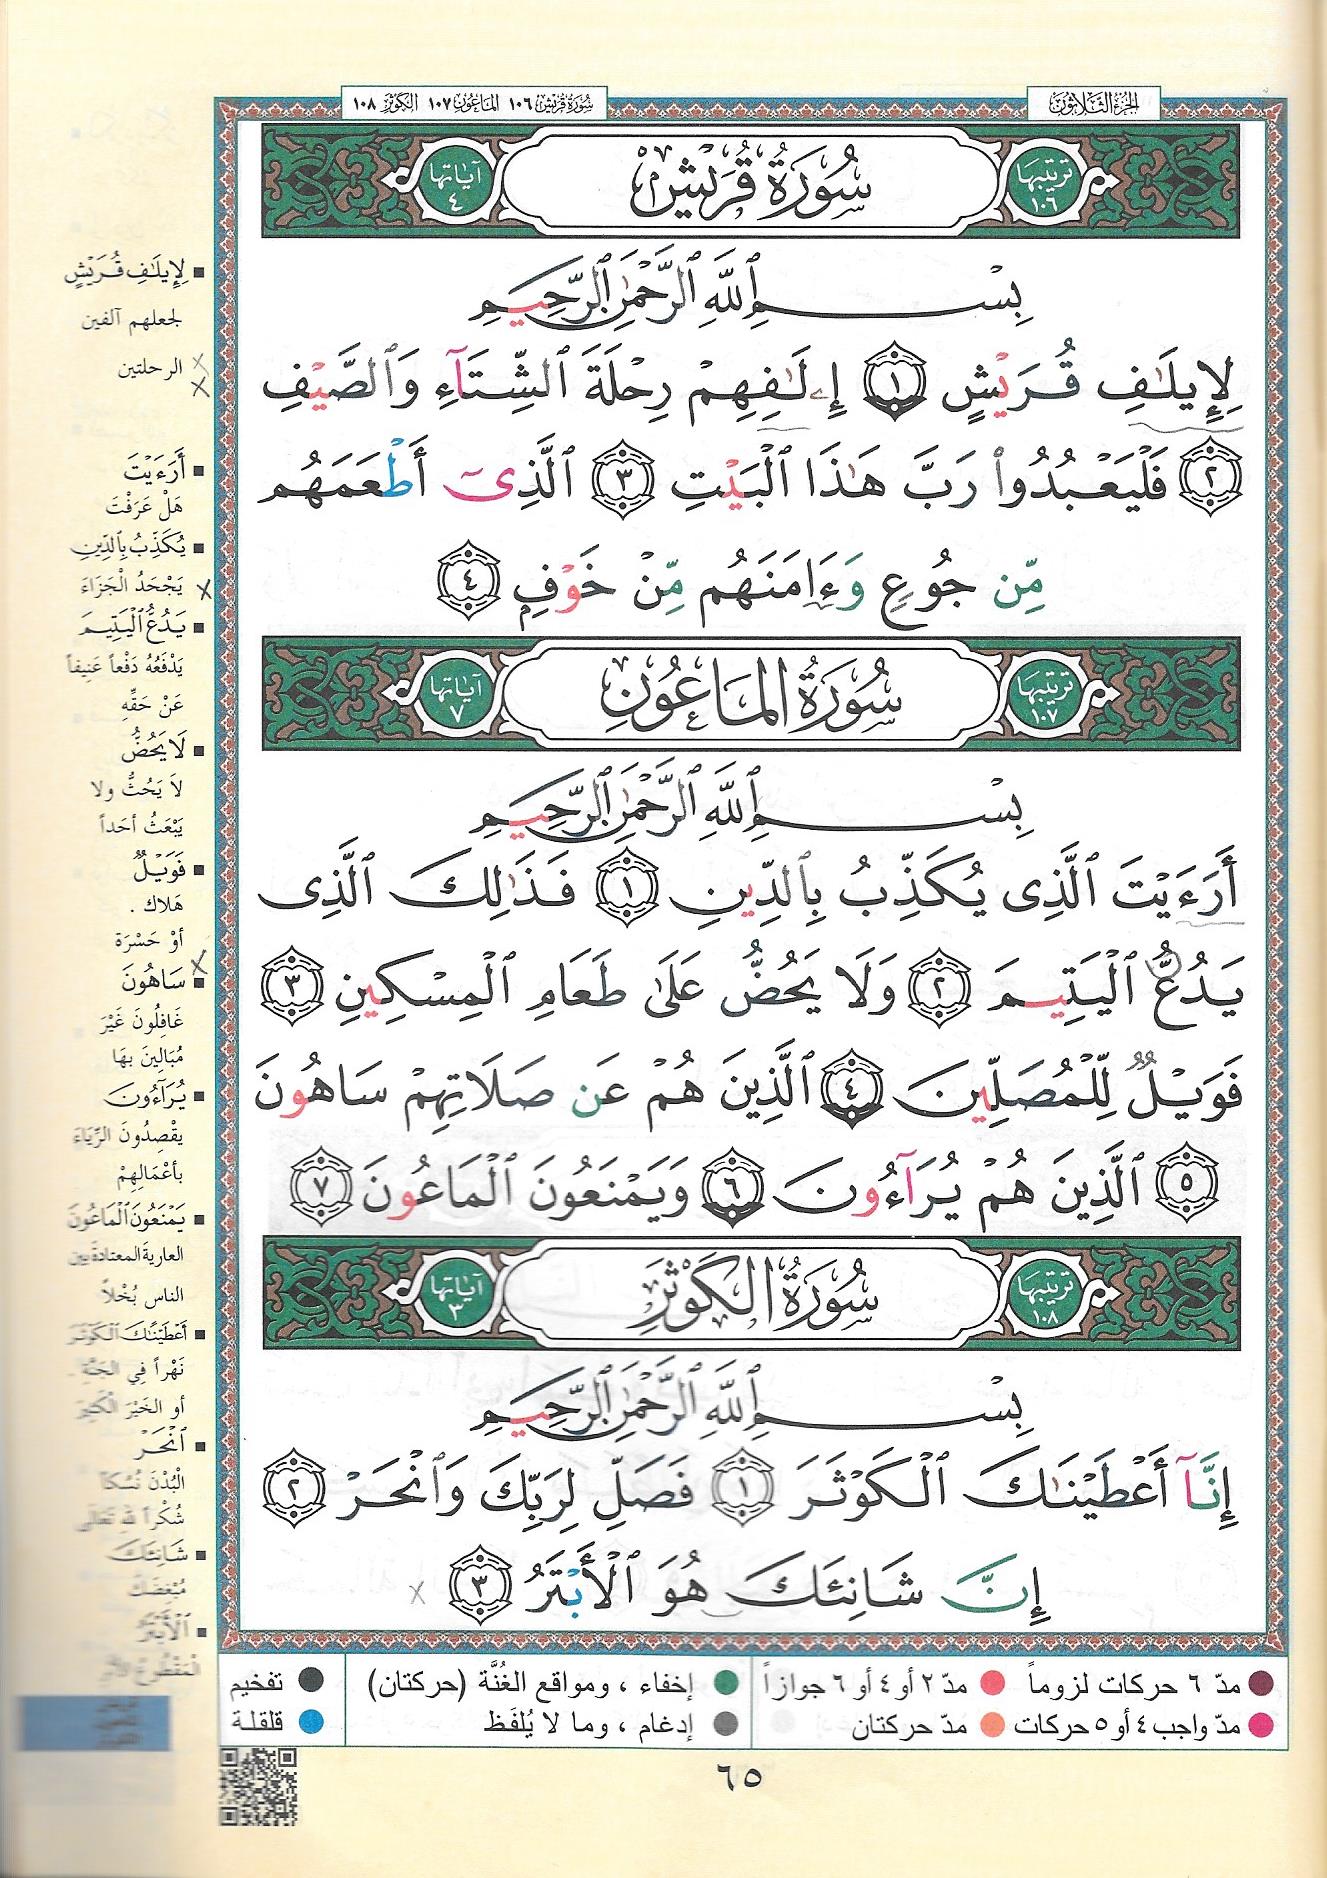 الجزء الثلاثون
سورة قريش ١٠٦ الماعون ١٠٧ الكوثر ١٠٨
ترتيبها ١٠٦
سُورَةُ قُرَيْشٍ
آياتها ٤
بِسْمِ ٱللَّهِ ٱلرَّحْمَٰنِ ٱلرَّحِيمِ
لِإِيلَٰفِ قُرَيْشٍ ١ إِۦلَٰفِهِمْ رِحْلَةَ ٱلشِّتَآءِ وَٱلصَّيْفِ
٢ فَلْيَعْبُدُوا۟ رَبَّ هَٰذَا ٱلْبَيْتِ ٣ ٱلَّذِىٓ أَطْعَمَهُم
مِّن جُوعٍ وَءَامَنَهُم مِّنْ خَوْفٍ ٤
ترتيبها ١٠٧
سُورَةُ الْمَاعُونِ
آياتها ٧
بِسْمِ ٱللَّهِ ٱلرَّحْمَٰنِ ٱلرَّحِيمِ
أَرَءَيْتَ ٱلَّذِى يُكَذِّبُ بِٱلدِّينِ ١ فَذَٰلِكَ ٱلَّذِى
يَدُعُّ ٱلْيَتِيمَ ٢ وَلَا يَحُضُّ عَلَىٰ طَعَامِ ٱلْمِسْكِينِ ٣
فَوَيْلٌ لِّلْمُصَلِّينَ ٤ ٱلَّذِينَ هُمْ عَن صَلَاتِهِمْ سَاهُونَ
٥ ٱلَّذِينَ هُمْ يُرَآءُونَ ٦ وَيَمْنَعُونَ ٱلْمَاعُونَ ٧
ترتيبها ١٠٨
سُورَةُ الْكَوْثَرِ
آياتها ٣
بِسْمِ ٱللَّهِ ٱلرَّحْمَٰنِ ٱلرَّحِيمِ
إِنَّآ أَعْطَيْنَٰكَ ٱلْكَوْثَرَ ١ فَصَلِّ لِرَبِّكَ وَٱنْحَرْ ٢
إِنَّ شَانِئَكَ هُوَ ٱلْأَبْتَرُ ٣
لِإِيلَٰفِ قُرَيْشٍ
لجعلهم آلفين
الرحلتين
أَرَءَيْتَ
هَلْ عَرَفْتَ
يُكَذِّبُ بِٱلدِّينِ
يَجْحَدُ الْجَزَاءَ
يَدُعُّ ٱلْيَتِيمَ
يَدْفَعُهُ دَفْعاً عَنِيفاً
عَنْ حَقِّهِ
لَا يَحُضُّ
لاَ يَحُثُّ ولا
يَبْعَثُ أحَداً
فَوَيْلٌ
هَلاك .
أوْ حَسْرَة
سَاهُونَ
غَافِلُونَ غَيْرَ
مُبَالِينَ بهَا
يُرَآءُونَ
يقْصِدُونَ الرِّيَاءَ
بأعْمَالِهِمْ
يَمْنَعُونَ ٱلْمَاعُونَ
العارية المعتادة بين
الناس بُخْلاً
أَعْطَيْنَٰكَ ٱلْكَوْثَرَ
نَهْراً فِي الجَنَّةِ .
أو الخَيْرَ الْكَثِيرَ
ٱنْحَرْ
الْبُدْنَ نُسُكاً
شُكْراً للهِ تَعَالَى
شَانِئَكَ
مُبْغِضَكَ
ٱلْأَبْتَرُ
الْمَقْطُوعُ الأَثَرِ
مدّ ٦ حركات لزوماً
مدّ ٢ أو ٤ أو ٦ جوازاً
إخفاء ، ومواقع الغُنَّة (حركتان)
تفخيم
مدّ واجب ٤ أو ٥ حركات
مدّ حركتان
إدغام ، وما لا يُلفَظ
قلقلة
٦٥